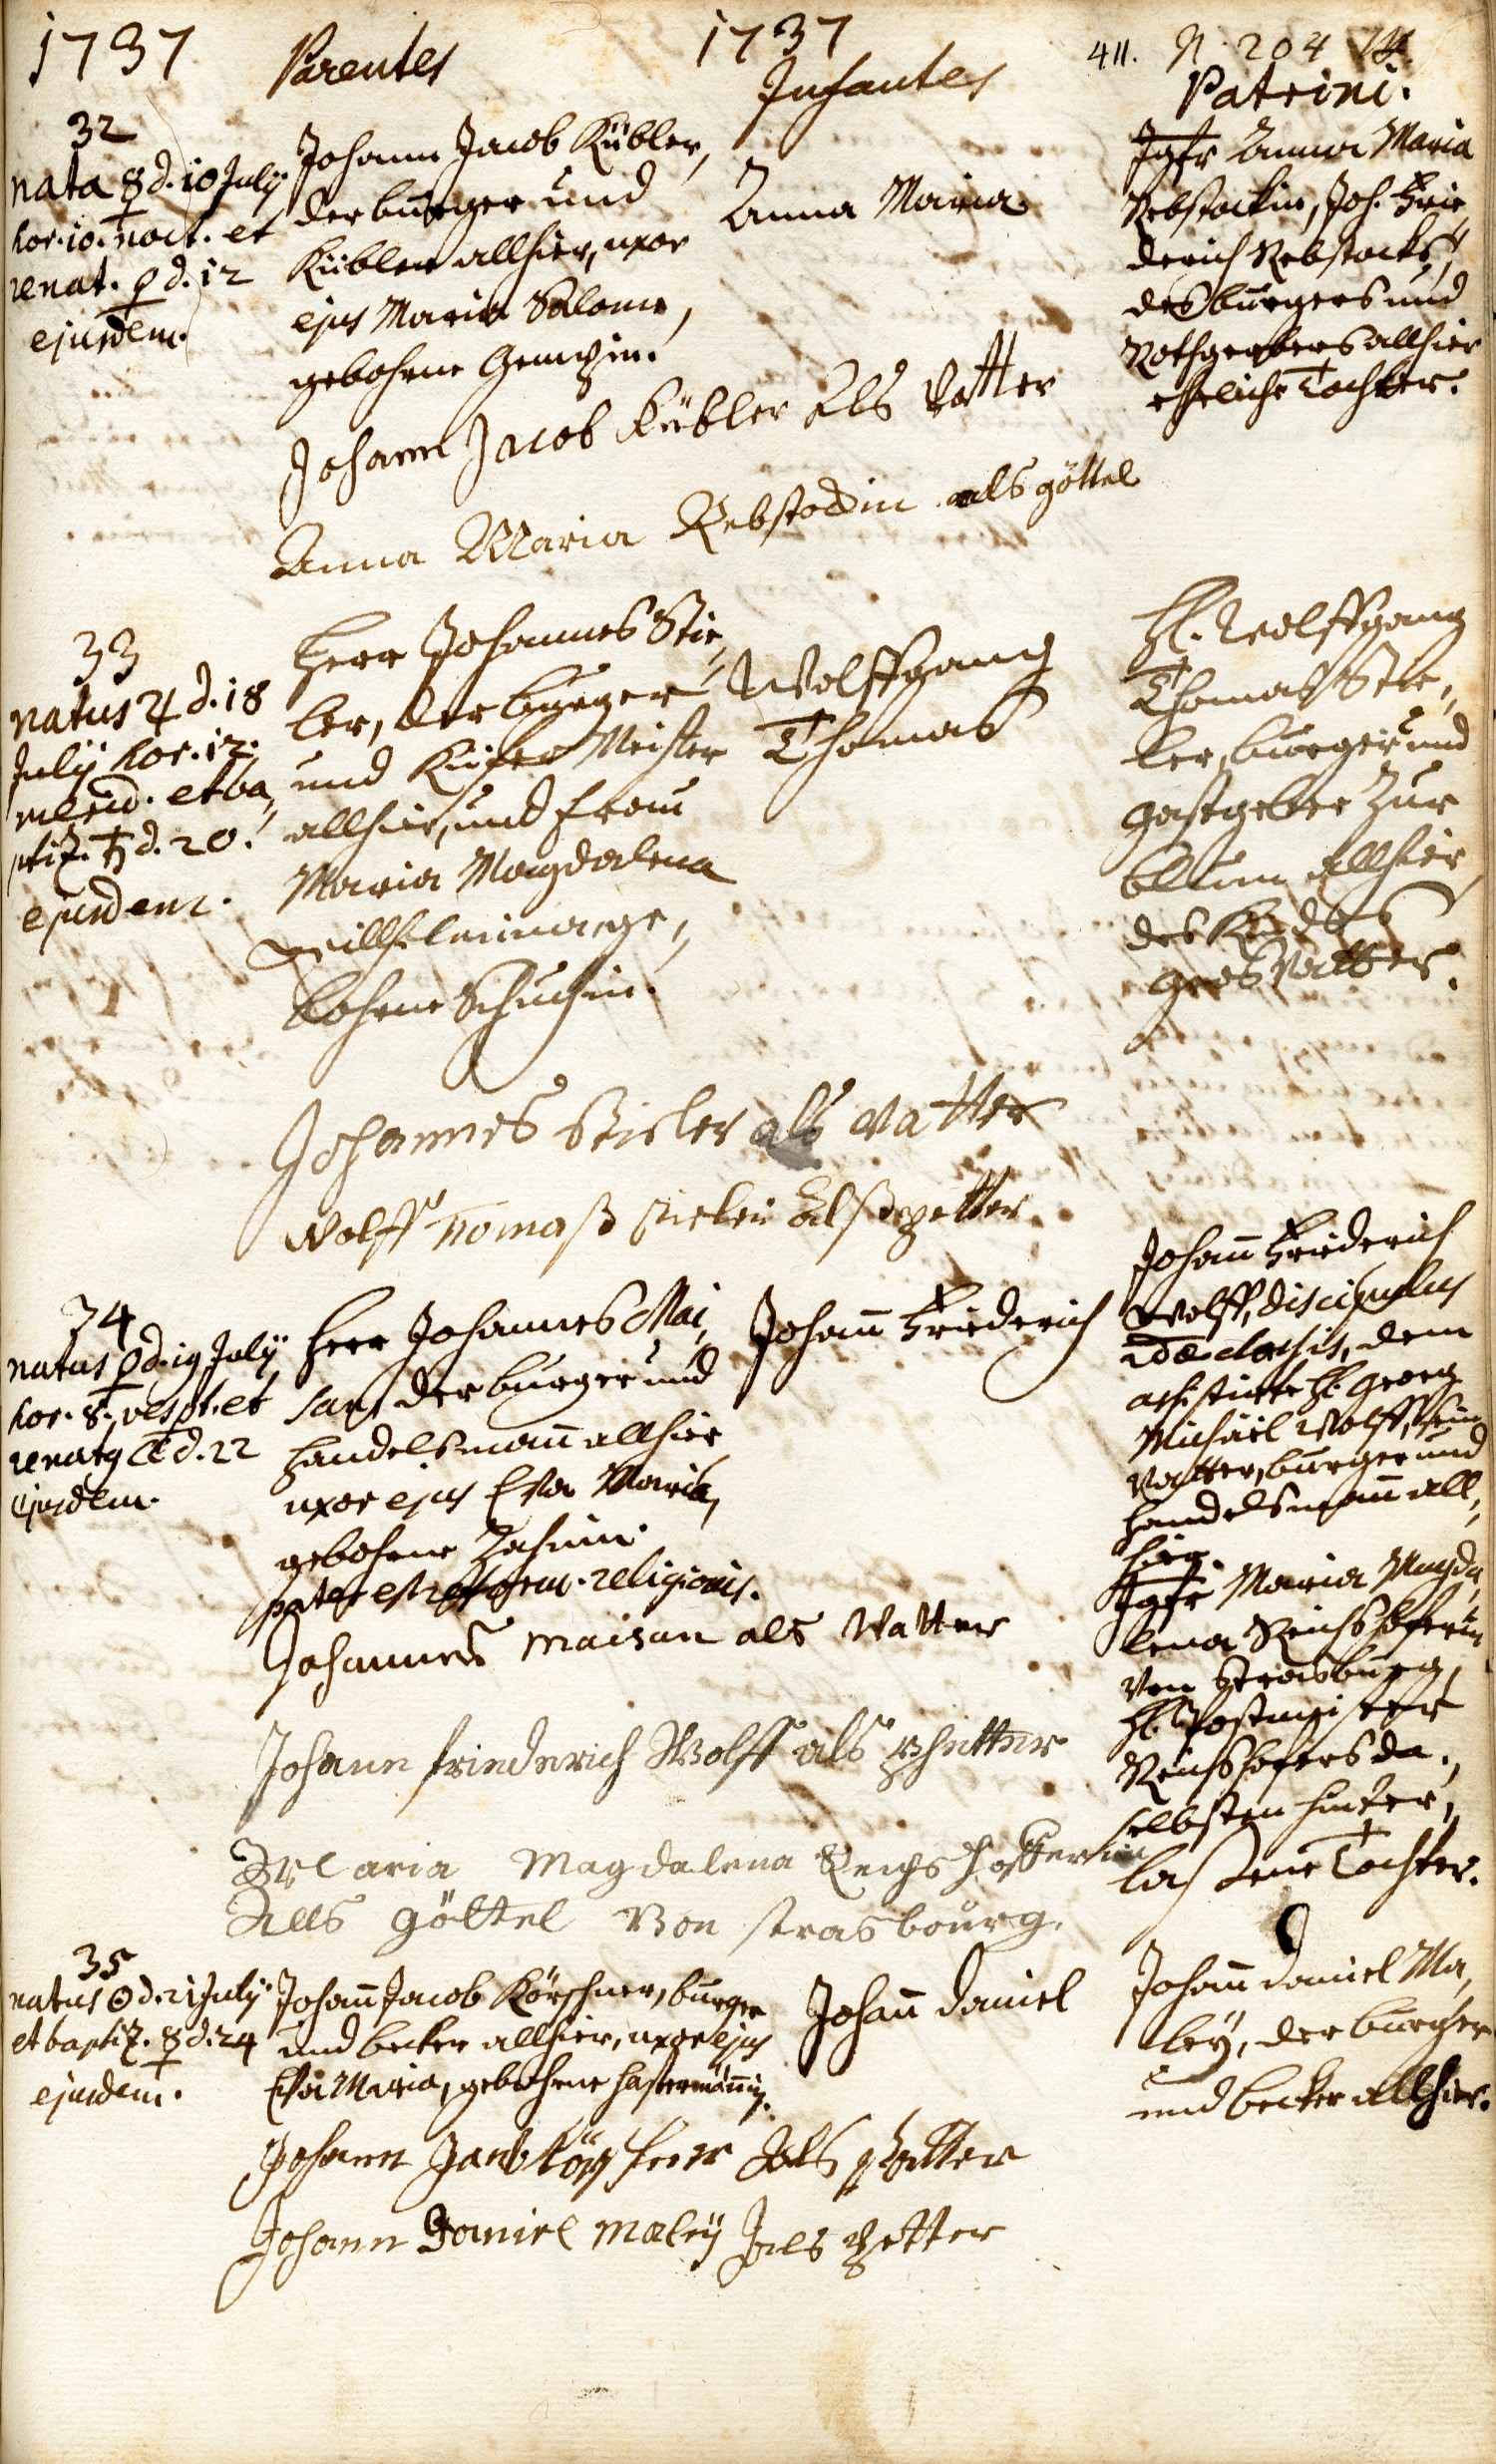 1737 Parentes 1737 Infantes 411. N. 204
Patrini.
32
nata ☿ d. 10 July
hor. 10. noct. et
renat. ♀ d. 12
ejusdem.
Johann Jacob Kübler,
der burger und
Kübler allhier, uxor
ejus Maria Salome,
gebohrne
Anna Maria
Jgfr Anna Maria
Rebstockin, Joh. Frie,,
derich Rebstocks,
des burgers und
Rothgerbers allhier
eheliche Tochter.
Johann Jacob Kübler Als Vatter
Anna Maria Rebstockin als göttel
33
natus ♃ d. 18
July hor. 12.
merid. et ba,,
ptiz. ♄ d. 20.
ejusdem.
Herr Johannes Stie,,
ler, der burger
und Küfer Meister
allhier, und frau
Maria Magdalena
Willhelmina ge,,
bohrne Schuchin.
Wolffgang
Thomas
H. Wolffgang
Thomas Stie,,
ler, burger und
gastgeber zur
blum allhier,
des Kindes
gros Vatter.
Johannes Stieler als Vatter
Wolff Tomaß stieler Alß pfetter
34
natus ♀ d. 19 July
hor. 8. vesp. et
renatq ☾ d. 22
ejusdem.
Herr Johannes Mai,,
san der burger und
handelsmañ allhier
uxor ejus Eva Maria,
gebohrne
pater est reform. religionis.
Johañ Friederich
Johañ Friederich
Wolff, discipulus
classis, dem
assistirte H. Georg
Michäel Wolff, sein
Vatter, burger und
handelsmañ all,,
hier.
Jgfr Maria Magda,,
lena Reichshoferin
von Strasburg,
H. Postmeister
Reichshofers da,,
selbsten hinter,,
lassene Tochter.
Johannes Maisan als Vatter
Johann friederich Wolff als Phetter
Maria Magdalena Reichshofferin
Alls göttel Von strasbourg.
35
natus ☉ d. 21 July
et baptiz. ☿ d. 24
ejusdem.
Johañ Jacob Körschner, burger
und becker allhier, uxor ejus
Eva Maria, gebohrne Hastermäñin.
Johañ Daniel
Johañ Daniel Ma,,
ley, der burger
und becker allhier.
Johann Jacob Als Vatter
Johann Daniel Maley Als Petter